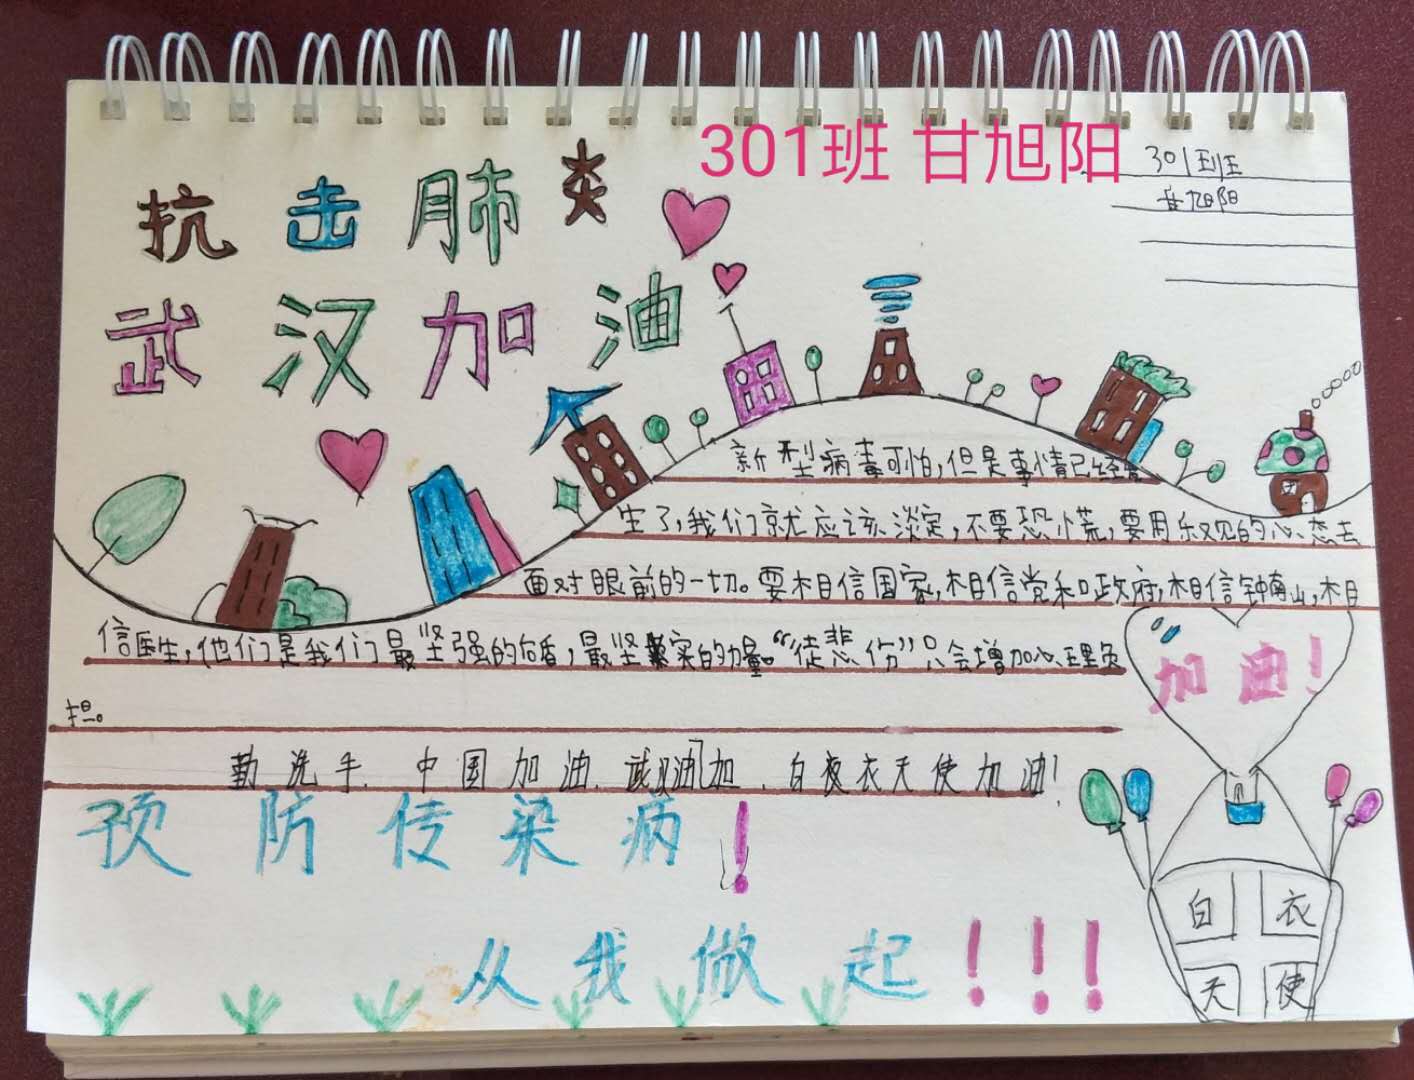 301班 甘旭阳
301班
甘旭阳
抗击肺炎
武汉加油
新型病毒可怕,但是事情已经发
生了,我们就应该淡定,不要恐慌,要用乐观的心态去
面对眼前的一切。要相信国家,相信党和政府,相信钟南山,相
信医生,他们是我们最坚强的后盾,最坚实的力量。“徒悲伤”只会增加心理负
担。
勤洗手、中国加油、武汉油加、白衣天使加油!
预防传染病!
从我做起!!!
加油!
白衣
天使